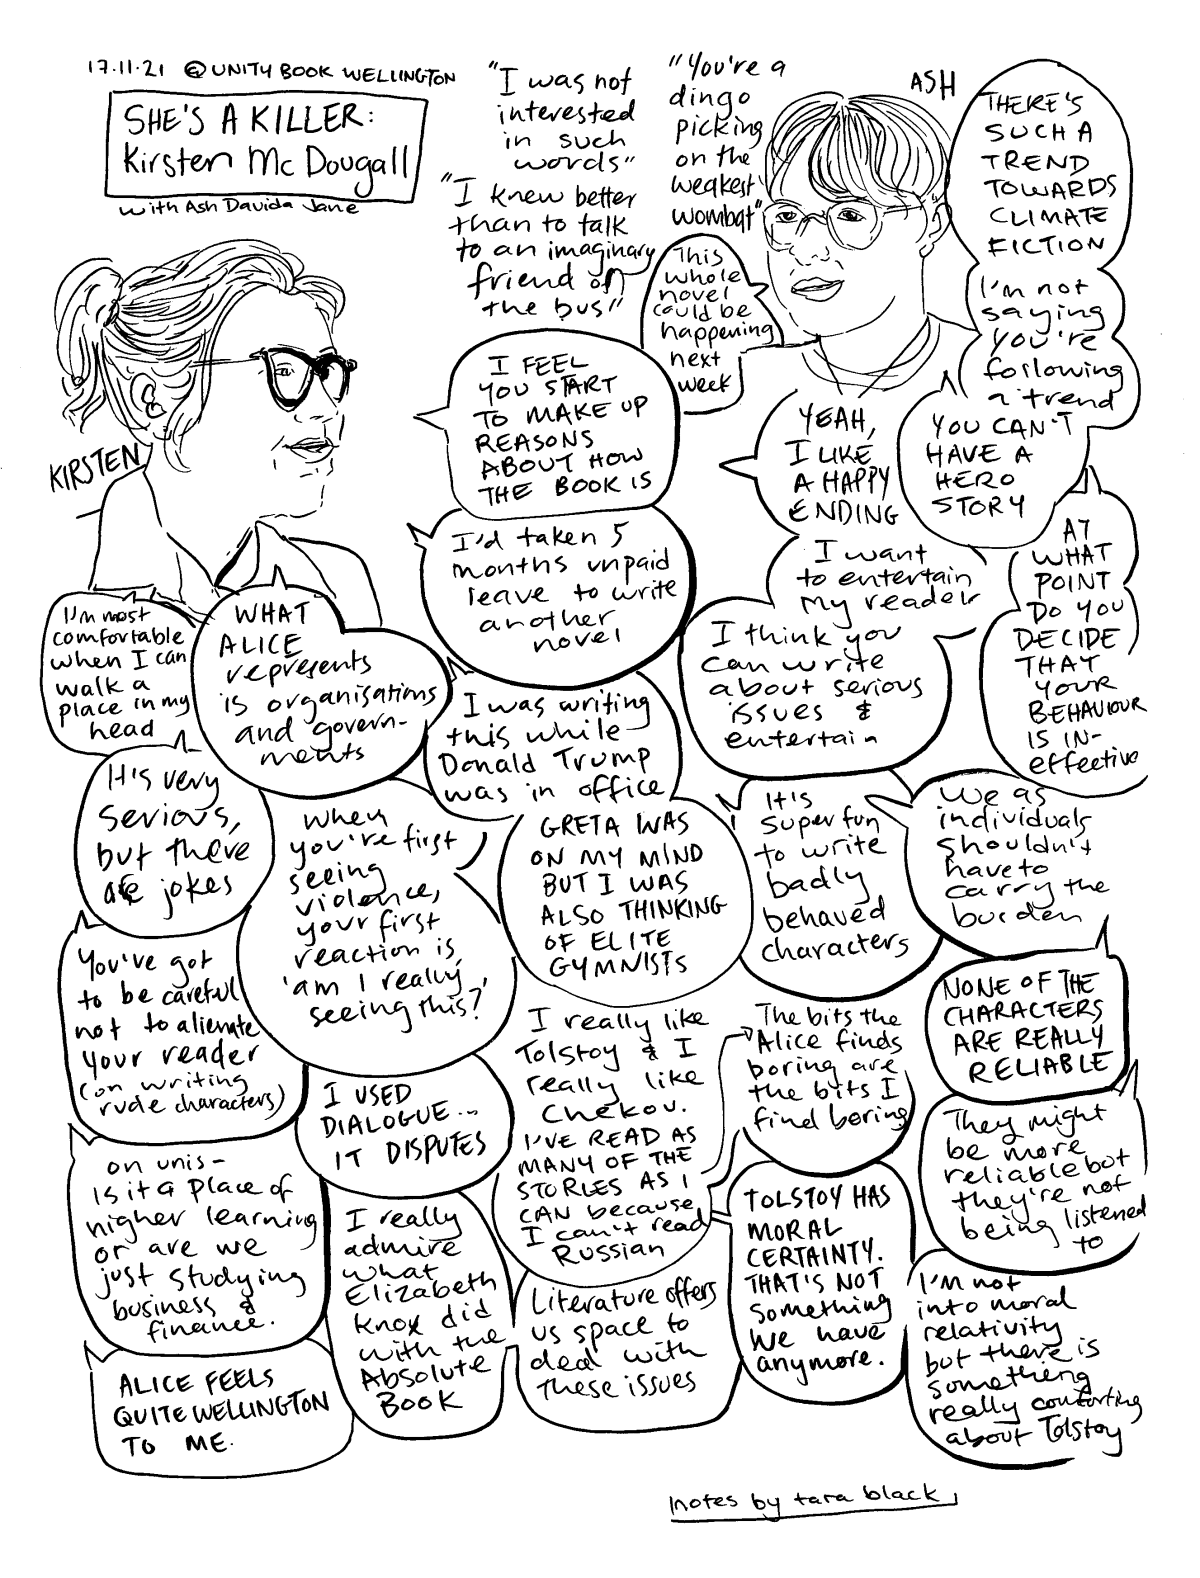 17.11.21 @ UNITY BOOK WELLINGTON
SHE'S A KILLER:
Kirsten McDougall
with Ash Davida Jane
"I was not
interested
in such
words"
"I knew better
than to talk
to an imaginary
friend on
the bus"
"You're a
dingo
picking
on the
weakest
wombat"
ASH
KIRSTEN
THERE'S
SUCH A
TREND
TOWARDS
CLIMATE
FICTION
I'm not
saying
you're
following
a trend
This
whole
novel
could be
happening
next
week
I FEEL
YOU START
TO MAKE UP
REASONS
ABOUT HOW
THE BOOK IS
YEAH,
I LIKE
A HAPPY
ENDING
YOU CAN'T
HAVE A
HERO
STORY
I'd taken 5
months unpaid
leave to write
another
novel
I want
to entertain
my reader
AT
WHAT
POINT
DO YOU
DECIDE
THAT
YOUR
BEHAVIOUR
IS IN-
effective
I'm most
comfortable
when I can
walk a
place in my
head
WHAT
ALICE
represents
is organisations
and govern-
ments
I think you
can write
about serious
issues &
entertain
I was writing
this while
Donald Trump
was in office
It's very
serious,
but there
are jokes
When
you're first
seeing
violence,
your first
reaction is,
'am I really
seeing this?'
GRETA WAS
ON MY MIND
BUT I WAS
ALSO THINKING
OF ELITE
GYMNISTS
It's
super fun
to write
badly
behaved
characters
We as
individuals
shouldn't
have to
carry the
burden
You've got
to be careful
not to alienate
your reader
(on writing
rude characters)
NONE OF THE
CHARACTERS
ARE REALLY
RELIABLE
I really like
Tolstoy & I
really like
Chekov.
I'VE READ AS
MANY OF THE
STORIES AS I
CAN because
I can't read
Russian
The bits the
Alice finds
boring are
the bits I
find boring
I USED
DIALOGUE...
IT DISPUTES
They might
be more
reliable but
they're not
being listened
to
on unis-
is it a place of
higher learning
or are we
just studying
business &
finance.
I really
admire
what
Elizabeth
Knox did
with the
Absolute
Book
TOLSTOY HAS
MORAL
CERTAINTY.
THAT'S NOT
something
we have
anymore.
Literature offers
us space to
deal with
these issues
I'm not
into moral
relativity
but there is
something
really comforting
about Tolstoy
ALICE FEELS
QUITE WELLINGTON
TO ME.
notes by tara black